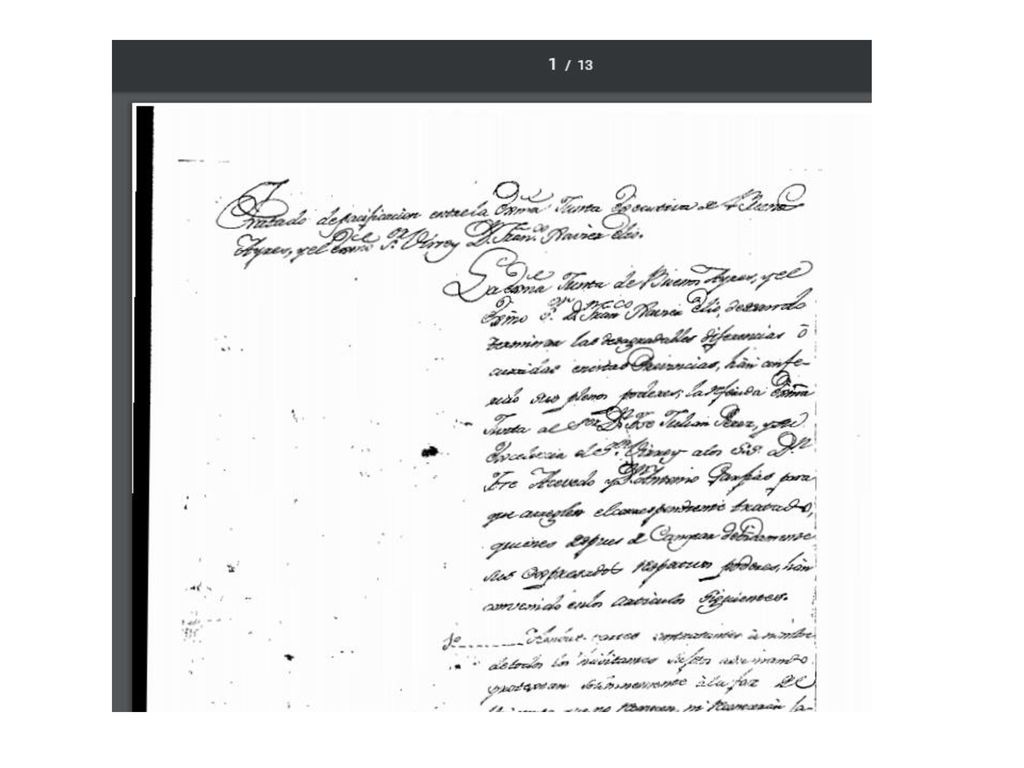 1 / 13
Tratado de pacificacion entre la Exma Junta Executiva de Buenos
Ayres, y el Exmo Sor Virrey Dn Franco Xavier Elio.
La Exma Junta de Buenos Ayres, y el
Exmo Sor Dn Franco Xavier Elio, deseando
terminar las desagradables diferencias o
curridas en estas Provincias, hán confe-
rido sus plenos poderes; la referida Exma
Junta al Sor Dr Jose Julian Perez, y su
Excelencia el Sor Virrey a los SS. Dn
Jose Acevedo y Dn Antonio Garfias para
que arreglen el correspondiente tratado,
quienes despues de Cangear debidamente
sus expresados respectivos poderes, hán
convenido en los articulos siguientes.
1o Ambas partes contratantes à nombre
de todos los habitantes sujetos a su mando
protextan solemnemente à la faz del
Universo que no reconocen, ni reconocerán ja-